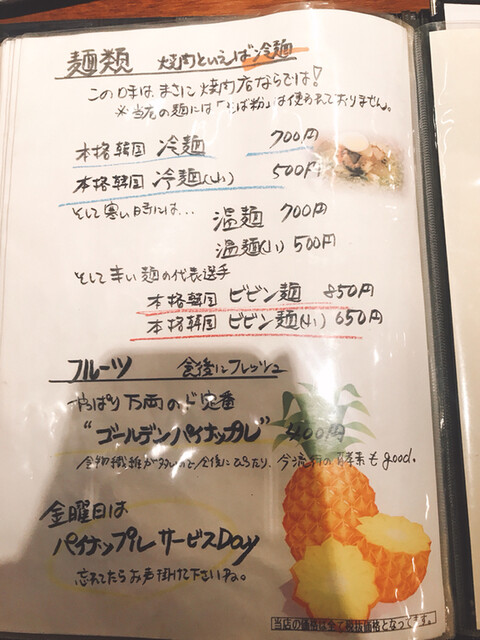 麺類 焼肉といえば冷麺
この味は、まさに焼肉店ならでは!
※当店の麺には「そば粉」は使われておりません。
本格韓国 冷麺 700円
本格韓国 冷麺(小) 500円
そして寒い時には…
温麺 700円
温麺(小) 500円
そして辛い麺の代表選手
本格韓国 ビビン麺 850円
本格韓国 ビビン麺(小) 650円
フルーツ 食後にフレッシュ
やっぱり万両のド定番
"ゴールデンパイナップル" 400円
食物繊維が多いので食後にぴったり、今流行の酵素もgood.
金曜日は
パイナップルサービスDay
忘れてたらお声掛け下さいね。
当店の価格は全て税抜価格となってます。